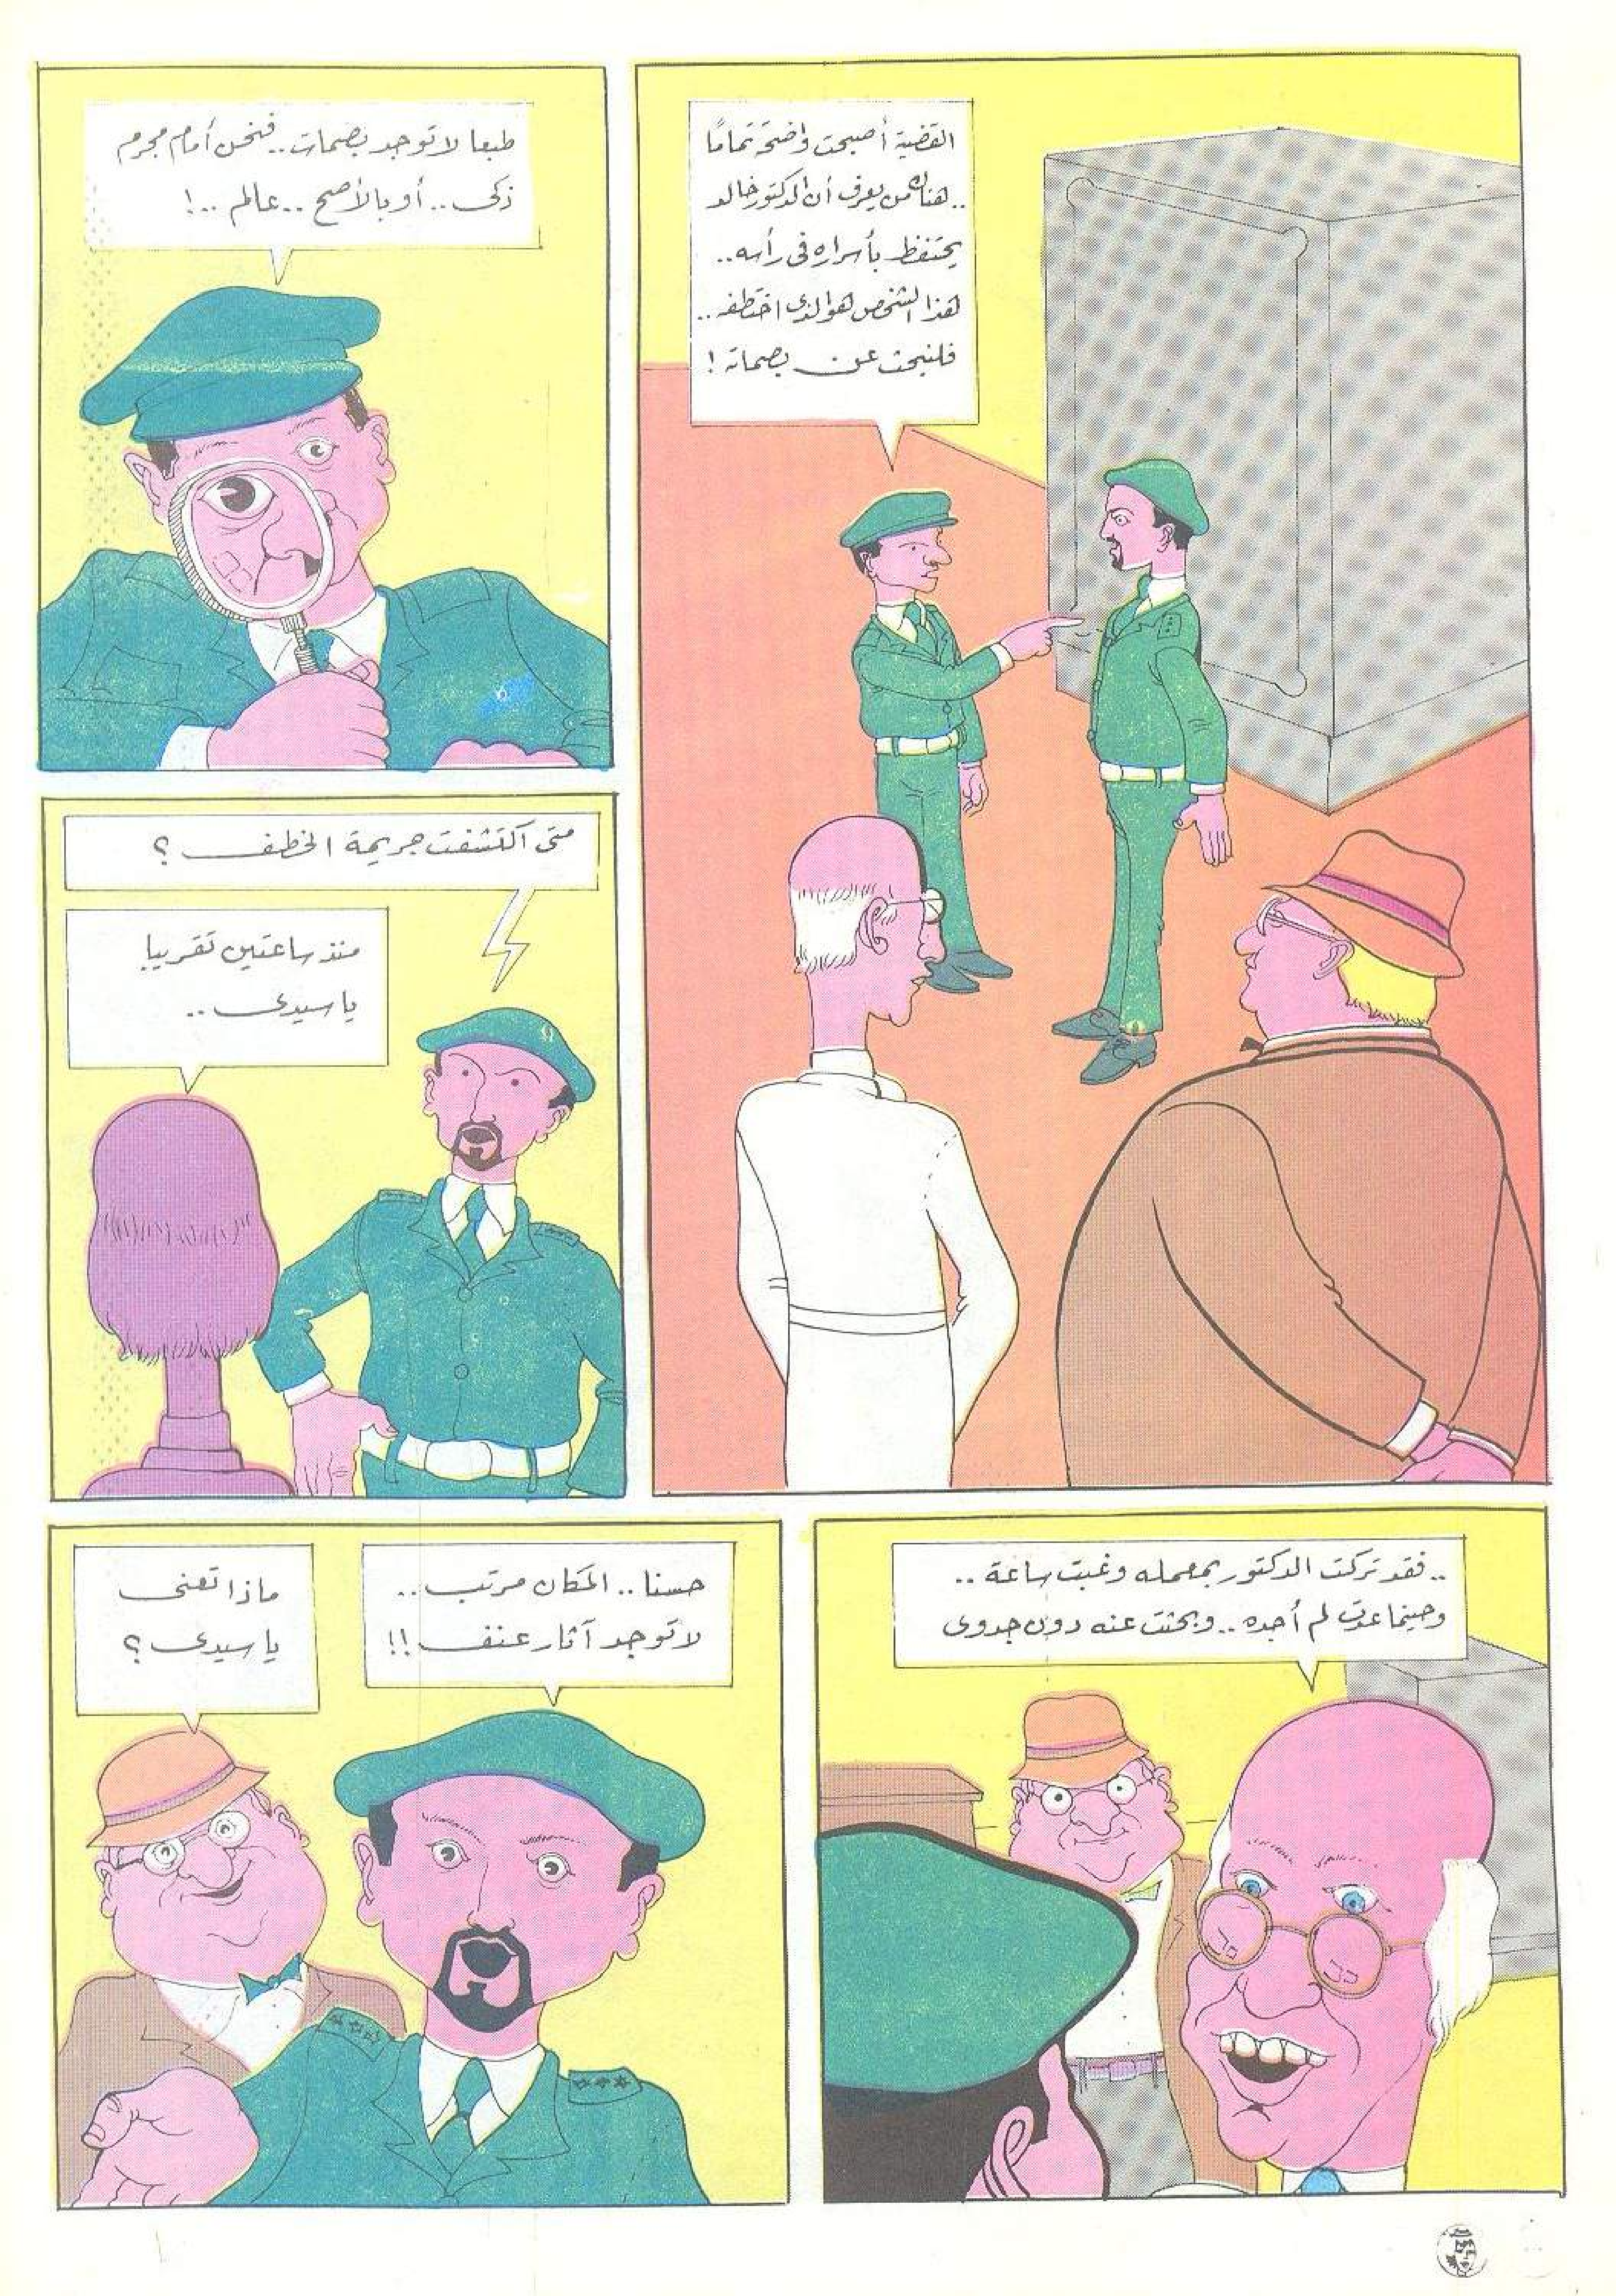 القضية أصبحت واضحة تمامًا
.. هناك من يعرف أن الدكتور خالد
يحتفظ بأسراره فى رأسه ..
هذا الشخص هو الذى اختطفه ..
فلنبحث عن بصماته !
طبعا لا توجد بصمات .. فنحن أمام مجرم
ذكى .. أو بالأصح .. عالم .. !
متى اكتشفت جريمة الخطف ؟
منذ ساعتين تقريبا
يا سيدى ..
.. فقد تركت الدكتور بمعمله وغبت ساعة ..
وحينما عدت لم أجده .. وبحثت عنه دون جدوى
حسنا .. المكان مرتب ..
لا توجد آثار عنف !!
ماذا تعنى
يا سيدى ؟